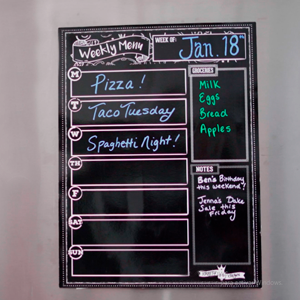 Weekly Menu
WEEK OF:
Jan. 18th
M
Pizza!
T
Taco Tuesday
W
Spaghetti Night!
TH
F
SAT
SUN
GROCERIES
Milk
Eggs
Bread
Apples
NOTES
Ben's Birthday
this weekend?
Jenna's Bake
Sale this
Friday